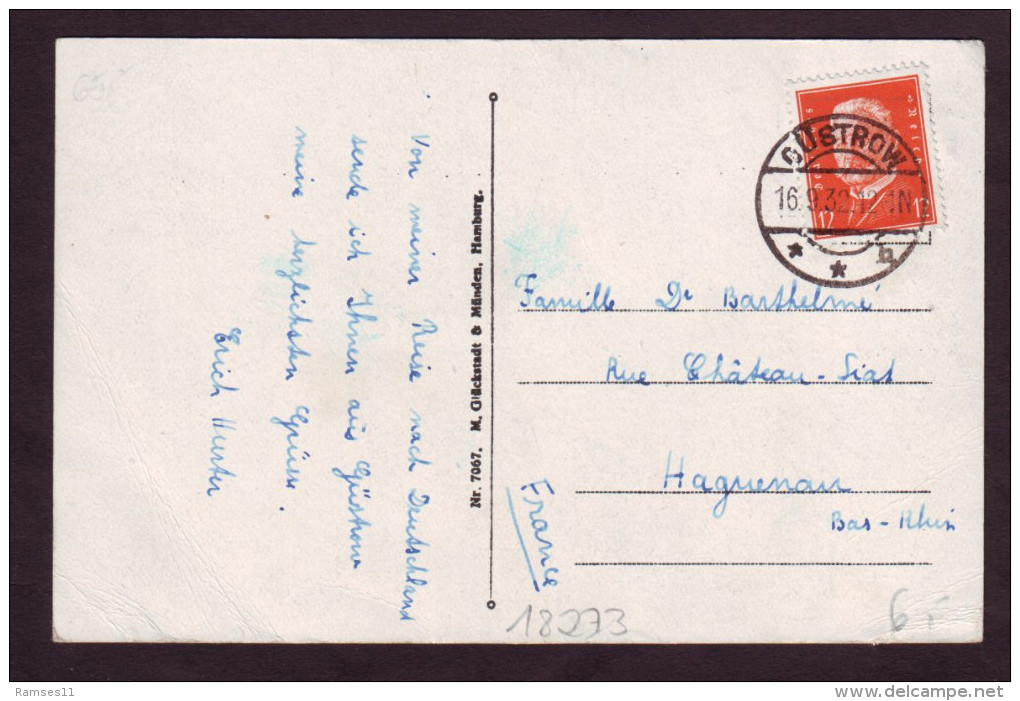 Von meiner Reise nach Deutschland
sende ich Ihnen aus Güstrow
meine herzlichsten Grüsse.
Erich Hurter
Nr. 7067. M. Glückstadt & Münden, Hamburg.
GÜSTROW
16.9.32.12-1N
* * b
12 12
Famille Dr Barthelmé
Rue Château-Fiat
Haguenau
Bas-Rhin
France
18273
6,-
Ramses11
www.delcampe.net